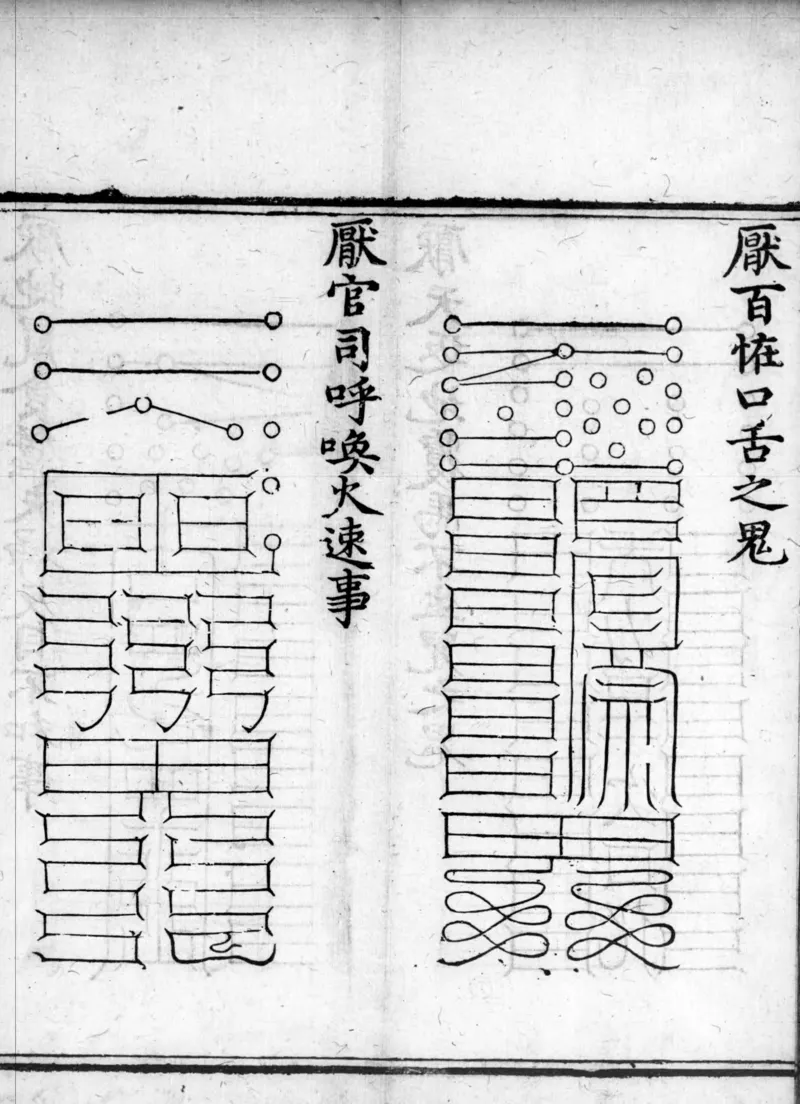 厭百恠口舌之鬼
厭官司呼喚火速事